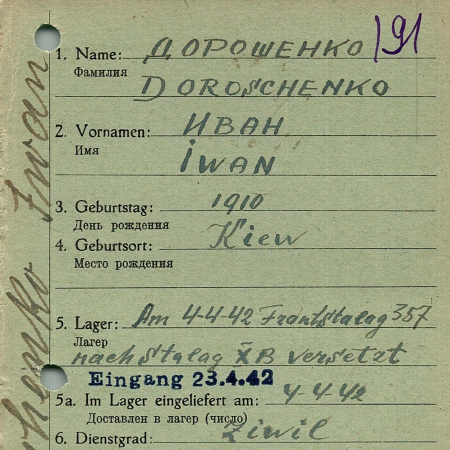 191
1. Name: ДОРОШЕНКО
Фамилия
DOROSCHENKO
2. Vornamen: ИВАН
Имя
iWAN
3. Geburtstag: 1910
День рождения
4. Geburtsort: Kiew
Место рождения
5. Lager: Am 4-4-42 Frontstalag 357
Лагер
nach Stalag XB versetzt
Eingang 23.4.42
5a. Im Lager eingeliefert am: 4-4-42
Доставлен в лагер (число)
6. Dienstgrad: Ziwil
henko Iwan